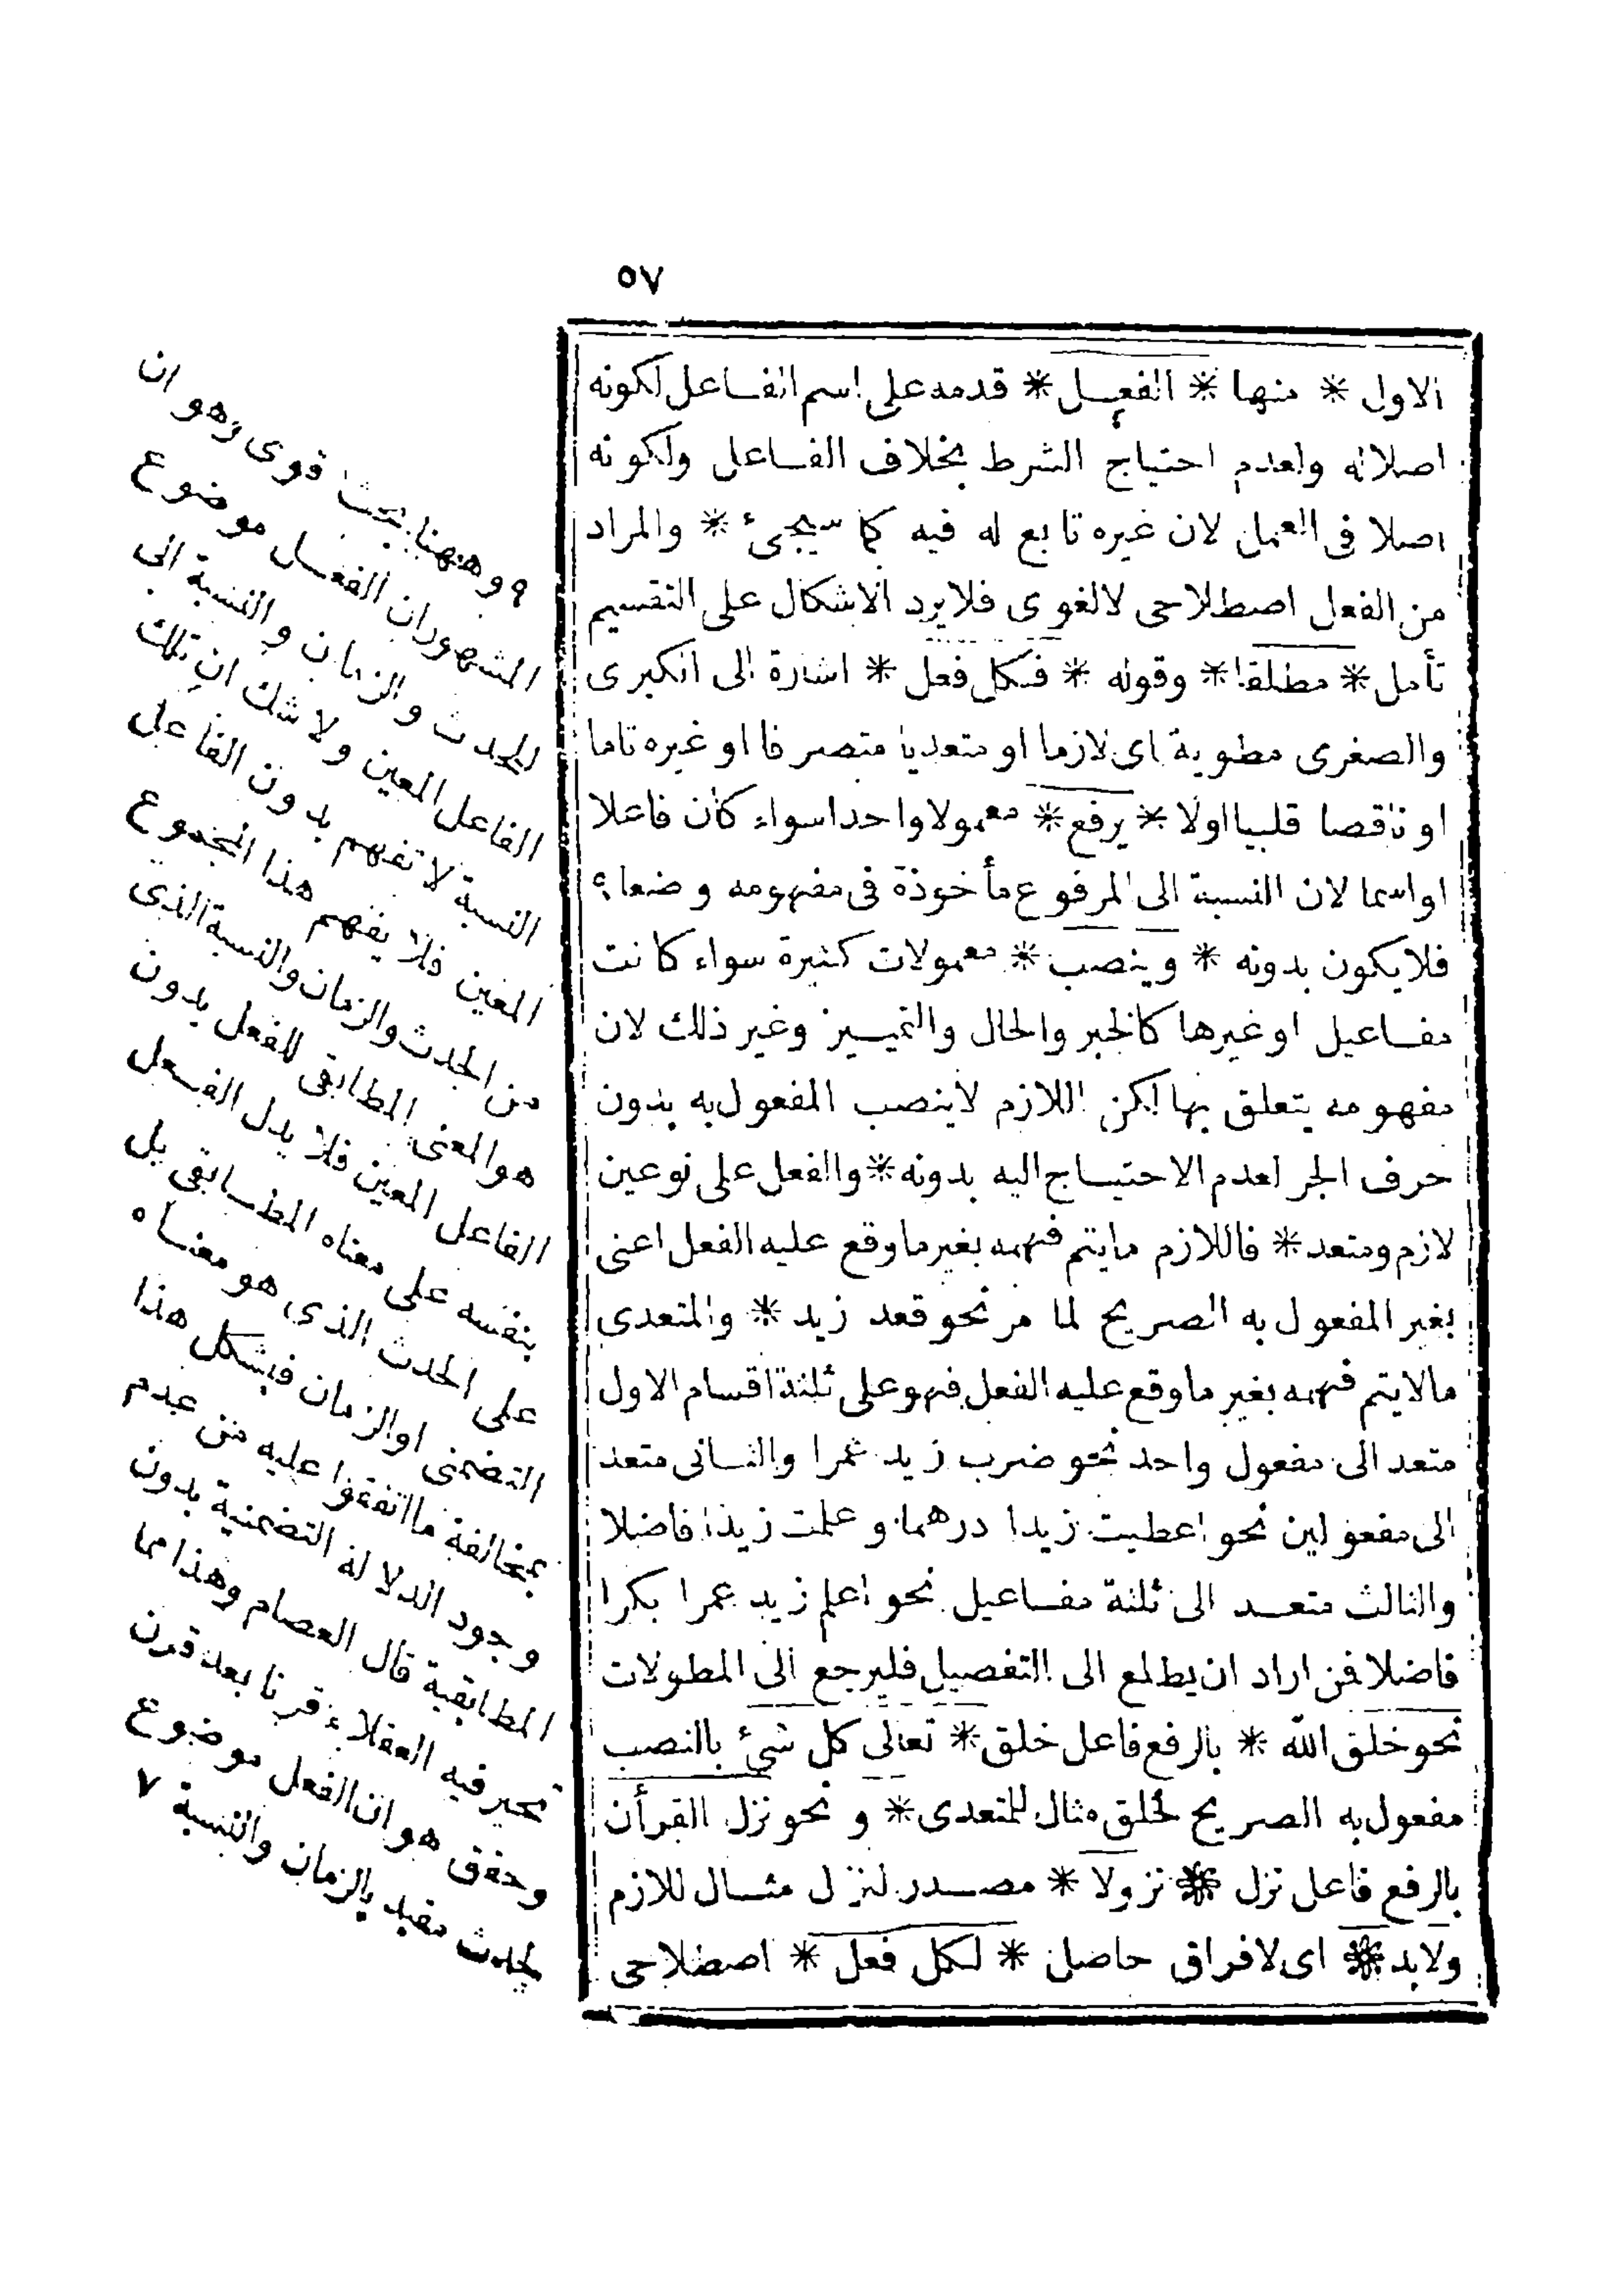 ٥٧
الاول * منها * الفعل * قدمه على اسم الفاعل لكونه
اصلا له ولعدم احتياج الشرط بخلاف الفاعل ولكونه
اصلا فى العمل لان غيره تابع له فيه كما سيجىء * والمراد
من الفعل اصطلاحى لا لغوى فلا يرد الاشكال على التقسيم
تأمل * مطلقا * وقوله * فكل فعل * اشارة الى الكبرى
والصغرى مطوية اى لازما او متعديا متصرفا او غيره تاما
او ناقصا قلبيا اولا * يرفع * معمولا واحدا سواء كان فاعلا
او اسما لان النسبة الى المرفوع مأخوذة فى مفهومه وضعا ٩
فلا يكون بدونه * وينصب * معمولات كثيرة سواء كانت
مفاعيل او غيرها كالخبر والحال والتمييز وغير ذلك لان
مفهومه يتعلق بها لكن اللازم لا ينصب المفعول به بدون
حرف الجر لعدم الاحتياج اليه بدونه * والفعل على نوعين
لازم ومتعد * فاللازم ما يتم فهمه بغير ما وقع عليه الفعل اعنى
بغير المفعول به الصريح لما مر نحو قعد زيد * والمتعدى
ما لا يتم فهمه بغير ما وقع عليه الفعل فهو على ثلثة اقسام الاول
متعد الى مفعول واحد نحو ضرب زيد عمرا والثانى متعد
الى مفعولين نحو اعطيت زيدا درهما وعلمت زيدا فاضلا
والثالث متعد الى ثلثة مفاعيل نحو اعلم زيد عمرا بكرا
فاضلا فمن اراد ان يطلع الى التفصيل فليرجع الى المطولات
نحو خلق الله * بالرفع فاعل خلق * تعالى كل شىء بالنصب
مفعول به الصريح لخلق مثال للمتعدى * و نحو نزل القرأن
بالرفع فاعل نزل * نزولا * مصدر لنزل مثال للازم
ولابد * اى لا فراق حاصل * لكل فعل * اصطلاحى
٩ وههنا بحث قوى وهو ان
المشهور ان الفعل موضوع
للحدث والزمان والنسبة الى
الفاعل المعين ولا شك ان تلك
النسبة لا تفهم بدون الفاعل
المعين فلا يفهم هذا المجموع
من الحدث والزمان والنسبة الذى
هو المعنى المطابقى للفعل بدون
الفاعل المعين فلا يدل الفعل
بنفسه على معناه المطابقى بل
على الحدث الذى هو معناه
التضمنى او الزمان فيشكل هذا
بمخالفة ما اتفقوا عليه من عدم
وجود الدلالة التضمنية بدون
المطابقية قال العصام وهذا مما
تحير فيه العقلاء قرنا بعد قرن
وحقق هو ان الفعل موضوع
لحدث مقيد بالزمان والنسبة ٧